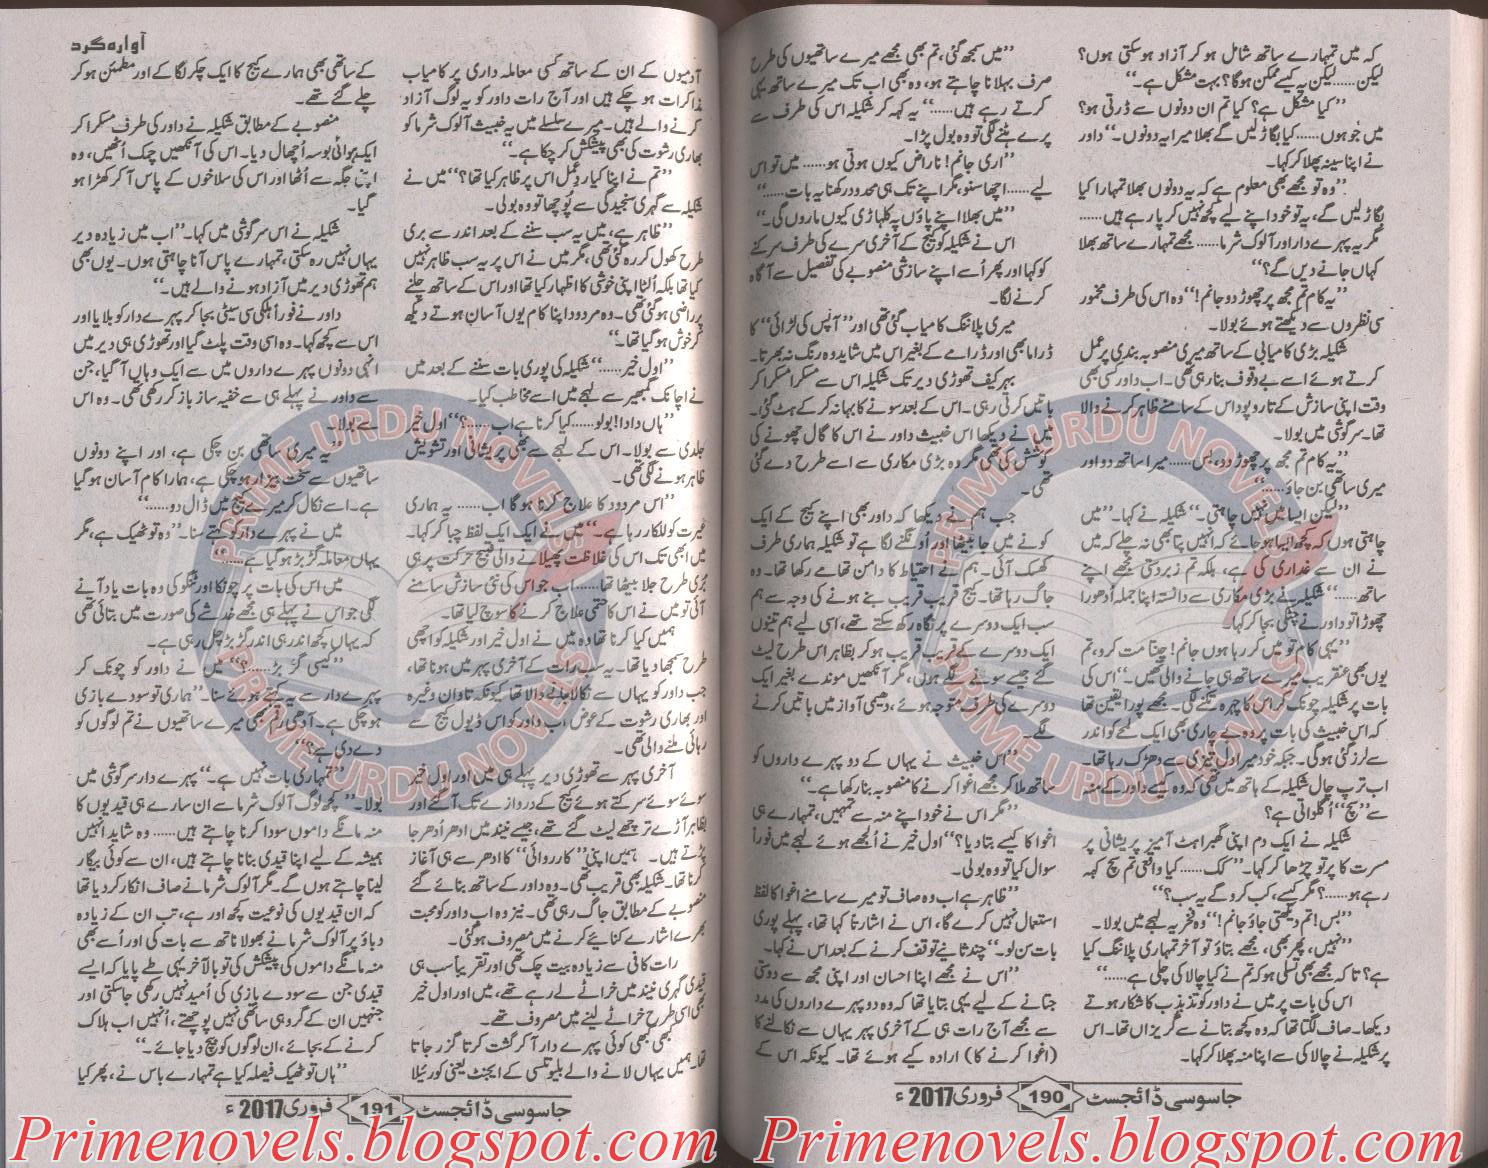 کہ میں تمہارے ساتھ شامل ہو کر آزاد ہو سکتی ہوں؟
لیکن...... لیکن یہ کیسے ممکن ہوگا؟ بہت مشکل ہے۔‘‘
’’کیا مشکل ہے؟ کیا تم ان دونوں سے ڈرتی ہو؟
میں جو ہوں...... کیا بگاڑ لیں گے بھلا میرا یہ دونوں۔‘‘ داور
نے اپنا سینہ پھلا کر کہا۔
’’وہ تو مجھے بھی معلوم ہے کہ یہ دونوں بھلا تمہارا کیا
بگاڑ لیں گے، یہ تو خود اپنے لیے کچھ نہیں کر پا رہے ہیں......
مگر یہ پہرے دار اور آلوک شرما...... مجھے تمہارے ساتھ بھلا
کہاں جانے دیں گے؟‘‘
’’یہ کام تم مجھ پر چھوڑ دو جانم!‘‘ وہ اس کی طرف مخمور
سی نظروں سے دیکھتے ہوئے بولا۔
شکیلہ بڑی کامیابی کے ساتھ میری منصوبہ بندی پر عمل
کرتے ہوئے اسے بے وقوف بنا رہی تھی۔ اب داور کسی بھی
وقت اپنی سازش کے تاروپود اس کے سامنے ظاہر کرنے والا
تھا۔ سرگوشی میں بولا۔
’’یہ کام تم مجھ پر چھوڑ دو، بس...... میرا ساتھ دو اور
میری ساتھی بن جاؤ......‘‘
’’لیکن ایسا میں نہیں چاہتی۔‘‘ شکیلہ نے کہا۔ ’’میں
چاہتی ہوں کہ کچھ ایسا ہو جائے کہ انہیں پتا بھی نہ چلے کہ میں
نے ان سے غداری کی ہے، بلکہ تم زبردستی مجھے اپنے
ساتھ......‘‘ شکیلہ نے بڑی مکاری سے دانستہ اپنا جملہ ادھورا
چھوڑا تو داور نے چٹکی بجا کر کہا۔
’’یہی کام تو میں کر رہا ہوں جانم! چنتا مت کرو، تم
یوں بھی عنقریب میرے ساتھ ہی جانے والی تھیں۔‘‘ اس کی
بات پر شکیلہ چونک کر اس کا چہرہ تکنے لگی۔ مجھے پورا یقین تھا
کہ اس خبیث کی بات پر وہ بے چاری بھی ایک لمحے کو اندر
سے لرز گئی ہوگی۔ جبکہ خود میرا دل تیزی سے دھڑک رہا تھا۔
اب ترپ چال شکیلہ کے ہاتھ میں تھی کہ وہ کیسے داور کے منہ
سے ’’سچ‘‘ اگلواتی ہے؟
شکیلہ نے ایک دم اپنی گھبراہٹ آمیز پریشانی پر
مسرت کا پرتو چڑھا کر کہا۔ ’’کک...... کیا واقعی تم سچ کہہ
رہے ہو......؟ مگر کیسے، کب کرو گے یہ سب؟‘‘
’’بس! تم دیکھتی جاؤ جانم!‘‘ وہ فخریہ لہجے میں بولا۔
’’نہیں، پھر بھی، مجھے بتاؤ تو آخر تمہاری پلاننگ کیا
ہے؟ تاکہ مجھے بھی تسلی ہو کہ تم نے کیا چالا کی چلی ہے......‘‘
اس کی بات پر میں نے داور کو تذبذب کا شکار ہوتے
دیکھا۔ صاف لگتا تھا کہ وہ کچھ بتانے سے گریزاں تھا۔ اس
پر شکیلہ نے چالاکی سے اپنا منہ پھلا کر کہا۔
’’میں سمجھ گئی، تم بھی مجھے میرے ساتھیوں کی طرح
صرف بہلانا چاہتے ہو، وہ بھی اب تک میرے ساتھ یہی
کرتے رہے ہیں......‘‘ یہ کہہ کر شکیلہ اس کی طرف سے
پرے ہٹنے لگی تو وہ بول پڑا۔
’’اری جانم! ناراض کیوں ہوتی ہو...... میں تو اس
لیے...... اچھا سنو، مگر اپنے تک ہی محدود رکھنا یہ بات......‘‘
’’میں بھلا اپنے پاؤں پہ کلہاڑی کیوں ماروں گی۔‘‘
اس نے شکیلہ کو کیج کے آخری سرے کی طرف سرکنے
کو کہا اور پھر اُسے اپنے سازشی منصوبے کی تفصیل سے آگاہ
کرنے لگا۔
میری پلاننگ کامیاب گئی تھی اور ’’آپس کی لڑائی‘‘ کا
ڈراما بھی اور ڈرامے کے بغیر اس میں شاید وہ رنگ نہ بھرتا۔
بہر کیف تھوڑی دیر تک شکیلہ اس سے مسکرا مسکرا کر
باتیں کرتی رہی۔ اس کے بعد سونے کا بہانہ کر کے ہٹ گئی۔
میں نے دیکھا اس خبیث داور نے اس کا گال چھونے کی
کوشش کی تھی مگر وہ بڑی مکاری سے اسے طرح دے گئی
تھی۔
جب ہم نے دیکھا کہ داور بھی اپنے کیج کے ایک
کونے میں جا بیٹھا اور اونگھنے لگا ہے تو شکیلہ ہماری طرف
کھسک آئی۔ ہم نے احتیاط کا دامن تھامے رکھا تھا۔ وہ
جاگ رہا تھا۔ کیج قریب قریب بنے ہونے کی وجہ سے ہم
سب ایک دوسرے پر نگاہ رکھ سکتے تھے، اسی لیے ہم تینوں
ایک دوسرے کے قریب قریب ہو کر بظاہر اس طرح لیٹ
گئے جیسے سونے لگے ہوں، مگر آنکھیں موندے بغیر ایک
دوسرے کی طرف متوجہ ہوئے، دھیمی آواز میں باتیں کرنے
لگے۔
’’اس خبیث نے یہاں کے دو پہرے داروں کو
ساتھ ملا کر مجھے اغوا کرنے کا منصوبہ بنا رکھا ہے۔‘‘
’’مگر اس نے خود اپنے منہ سے تمہیں، تمہارے ہی
اغوا کا کیسے بتا دیا؟‘‘ اول خیر نے اُلجھے ہوئے لہجے میں فوراً
سوال کیا تو وہ بولی۔
’’ظاہر ہے اب وہ صاف تو میرے سامنے اغوا کا لفظ
استعمال نہیں کرے گا، اس نے اشارتاً کہا تھا، پہلے پوری
بات سن لو۔‘‘ چند ثانیے توقف کرنے کے بعد اس نے کہا۔
’’اس نے مجھے اپنا احسان اور اپنی مجھ سے دوستی
جتانے کے لیے یہی بتایا تھا کہ وہ دو پہرے داروں کی مدد
سے مجھے آج رات ہی کے آخری پہر یہاں سے نکالنے کا
(اغوا کرنے کا) ارادہ کیے ہوئے تھا۔ کیونکہ اس کے
جاسوسی ڈائجسٹ 190 فروری 2017ء
آوارہ گرد
آدمیوں کے ان کے ساتھ کسی معاملہ داری پر کامیاب
مذاکرات ہو چکے ہیں اور آج رات داور کو یہ لوگ آزاد
کرنے والے ہیں۔ میرے سلسلے میں یہ خبیث آلوک شرما کو
بھاری رشوت کی بھی پیشکش کر چکا ہے۔‘‘
’’تم نے اپنا کیا ردِعمل اس پر ظاہر کیا تھا؟‘‘ میں نے
شکیلہ سے گہری سنجیدگی سے پوچھا تو وہ بولی۔
’’ظاہر ہے، میں یہ سب سننے کے بعد اندر سے بری
طرح کھول کر رہ گئی تھی، مگر میں نے اس پر یہ سب ظاہر نہیں
کیا تھا بلکہ اُلٹا اپنی خوشی کا اظہار کیا تھا اور اس کے ساتھ چلنے
پر راضی ہو گئی تھی۔ وہ مردود اپنا کام یوں آسان ہوتے دیکھ
کر خوش ہو گیا تھا۔‘‘
’’اول خیر......‘‘ شکیلہ کی پوری بات سننے کے بعد میں
نے اچانک گمبھیر سے لہجے میں اسے مخاطب کیا۔
’’ہاں دادا! بولو...... کیا کرنا ہے اب......؟‘‘ اول خیر
جلدی سے بولا۔ اس کے لہجے سے بھی پریشانی اور تشویش
ظاہر ہونے لگی تھی۔
’’اس مردود کا علاج کرنا ہوگا اب...... یہ ہماری
غیرت کو للکار رہا ہے۔‘‘ میں نے ایک ایک لفظ چبا کر کہا۔
میں ابھی تک اس کی غلاظت پھیلانے والی قبیح حرکت پر ہی
بُری طرح جلا بیٹھا تھا...... اب جو اس کی نئی سازش سامنے
آئی تو میں نے اس کا حتمی علاج کرنے کا سوچ لیا تھا۔
ہمیں کیا کرنا تھا وہ میں نے اول خیر اور شکیلہ کو اچھی
طرح سمجھا دیا تھا۔ یہ سب رات کے آخری پہر میں ہونا تھا،
جب داور کو یہاں سے نکالا جانے والا تھا کیونکہ تاوان وغیرہ
اور بھاری رشوت کے عوض اب داور کو اس ڈیول کیج سے
رہائی ملنے والی تھی۔
آخری پہر سے تھوڑی دیر پہلے ہی میں اور اول خیر
سوئے سوئے سرکتے ہوئے کیج کے دروازے تک آگئے اور
بظاہر آڑے ترچھے لیٹ گئے تھے، جیسے نیند میں ادھر اُدھر جا
پڑتے ہیں۔ ہمیں اپنی ’’کارروائی‘‘ کا ادھر سے ہی آغاز
کرنا تھا۔ شکیلہ بھی قریب تھی۔ وہ داور کے ساتھ بنائے گئے
منصوبے کے مطابق جاگ رہی تھی۔ نیز وہ اب داور کو محبت
بھرے اشارے کنائیے کرنے میں مصروف ہو گئی۔
رات کافی سے زیادہ بیت چکی تھی اور تقریباً سب ہی
قیدی گہری نیند میں خراٹے لے رہے تھے، میں اور اول خیر
بھی اسی طرح خراٹے لینے میں مصروف تھے۔
کبھی کبھی کوئی پہرے دار آکر گشت کرتا گزر جاتا
تھا۔ ہمیں یہاں لانے والے بلیو تلسی کے ایجنٹ یعنی کورئیلا
کے ساتھی بھی ہمارے کیج کا ایک چکر لگا کے اور مطمئن ہو کر
چلے گئے تھے۔
منصوبے کے مطابق شکیلہ نے داور کی طرف مسکرا کر
ایک ہوائی بوسہ اُچھال دیا۔ اس کی آنکھیں چمک اُٹھیں، وہ
اپنی جگہ سے اُٹھا اور اس کی سلاخوں کے پاس آ کر کھڑا ہو
گیا۔
شکیلہ نے اس سرگوشی میں کہا۔ ’’اب میں زیادہ دیر
یہاں نہیں رہ سکتی، تمہارے پاس آنا چاہتی ہوں۔ یوں بھی
ہم تھوڑی دیر میں آزاد ہونے والے ہیں۔‘‘
داور نے فوراً ہلکی سی سیٹی بجا کر پہرے دار کو بلایا اور
اس سے کچھ کہا۔ وہ اسی وقت پلٹ گیا اور تھوڑی ہی دیر میں
انہی دونوں پہرے داروں میں سے ایک وہاں آ گیا، جن
سے داور نے پہلے ہی سے خفیہ ساز باز کر رکھی تھی۔ وہ اس
سے بولا۔
’’یہ میری ساتھی بن چکی ہے، اور اپنے دونوں
ساتھیوں سے سخت بیزار ہو چکی ہے، ہمارا کام آسان ہو گیا
ہے۔ اسے نکال کر میرے کیج میں ڈال دو......‘‘
میں نے پہرے دار کو کہتے سنا۔ ’’وہ تو ٹھیک ہے، مگر
یہاں معاملہ گڑبڑ ہو گیا ہے......‘‘
میں اس کی بات پر چونکا اور شنگو کی وہ بات یاد آنے
لگی جو اس نے پہلے ہی مجھے خدشے کی صورت میں بتائی تھی
کہ یہاں کچھ اندر ہی اندر گڑبڑ چل رہی ہے۔
’’کیسی گڑبڑ......؟‘‘ میں نے داور کو چونک کر
پہرے دار سے یہ کہتے ہوئے سنا۔ ’’ہماری تو سودے بازی
ہو چکی ہے۔ آدھی رقم بھی میرے ساتھیوں نے تم لوگوں کو
دے دی ہے؟‘‘
’’تمہاری بات نہیں ہے۔‘‘ پہرے دار سرگوشی میں
بولا۔ ’’کچھ لوگ آلوک شرما سے ان سارے ہی قیدیوں کا
منہ مانگے داموں سودا کرنا چاہتے ہیں...... وہ شاید انہیں
ہمیشہ کے لیے اپنا قیدی بنانا چاہتے ہیں، ان سے کوئی بیگار
لینا چاہتے ہوں گے۔ مگر آلوک شرما نے صاف انکار کر دیا تھا
کہ ان قیدیوں کی نوعیت کچھ اور ہے، تب ان کے زیادہ
دباؤ پر آلوک شرما نے بھولا ناتھ سے بات کی اور اُسے بھی
منہ مانگے داموں کی پیشکش کی تو بالآخر یہی طے پایا کہ ایسے
قیدی جن سے سودے بازی کی اُمید نہیں رکھی جا سکتی اور
جنہیں ان کے گروہی ساتھی نہیں پوچھتے، اُنہیں اب ہلاک
کرنے کے بجائے، ان لوگوں کو بیچ دیا جائے۔‘‘
’’ہاں تو ٹھیک فیصلہ کیا ہے تمہارے باس نے، پھر کیا
جاسوسی ڈائجسٹ 191 فروری 2017ء
PRIME URDU NOVELS
PRIME URDU NOVELS
PRIME URDU NOVELS
PRIME URDU NOVELS
Primenovels.blogspot.com
Primenovels.blogspot.com